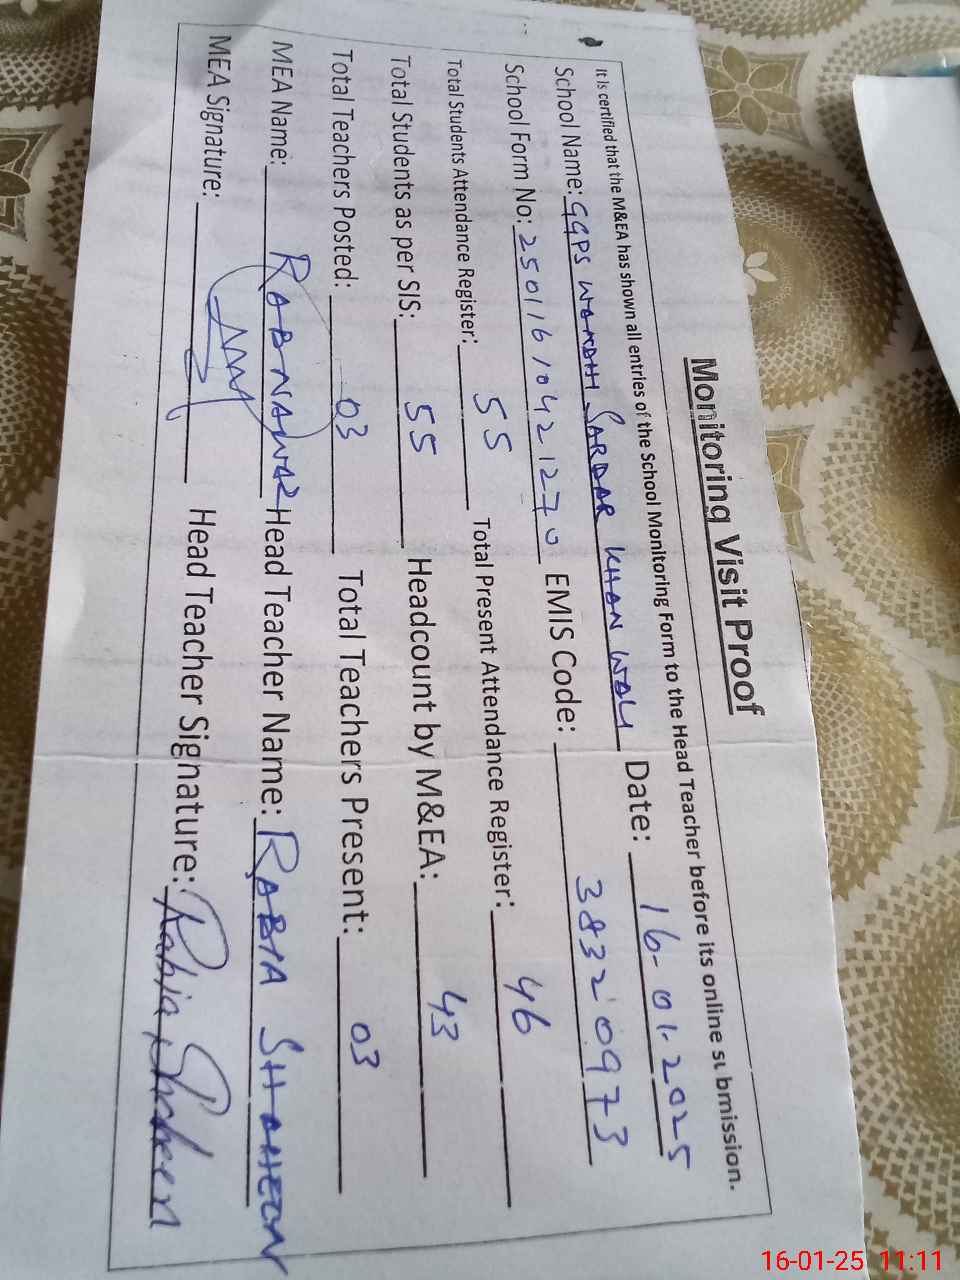 Monitoring Visit Proof
It is certified that the M&EA has shown all entries of the School Monitoring Form to the Head Teacher before its online submission.
School Name: GGPS WANDHI SARDAR KHAN WALI Date: 16-01-2025
School Form No: 25011610421270 EMIS Code: 38320973
Total Students Attendance Register: 55 Total Present Attendance Register: 46
Total Students as per SIS: 55 Headcount by M&EA: 43
Total Teachers Posted: 03 Total Teachers Present: 03
MEA Name: RABNAWAZ Head Teacher Name: RABIA SHAHEEN
MEA Signature: Head Teacher Signature: Rabia Shaheen
16-01-25 11:11